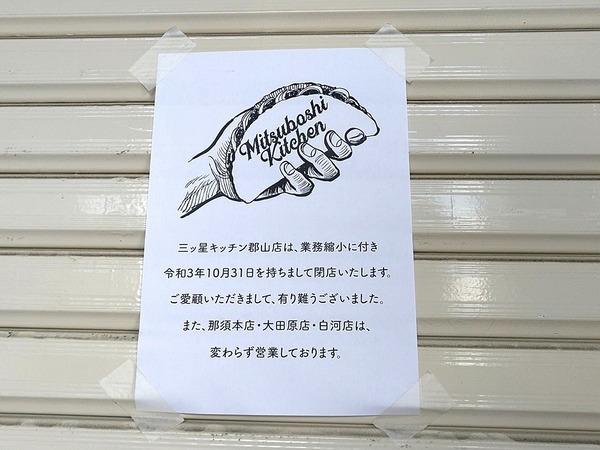 Mitsuboshi
Kitchen
三ッ星キッチン郡山店は、業務縮小に付き
令和3年10月31日を持ちまして閉店いたします。
ご愛顧いただきまして、有り難うございました。
また、那須本店・大田原店・白河店は、
変わらず営業しております。